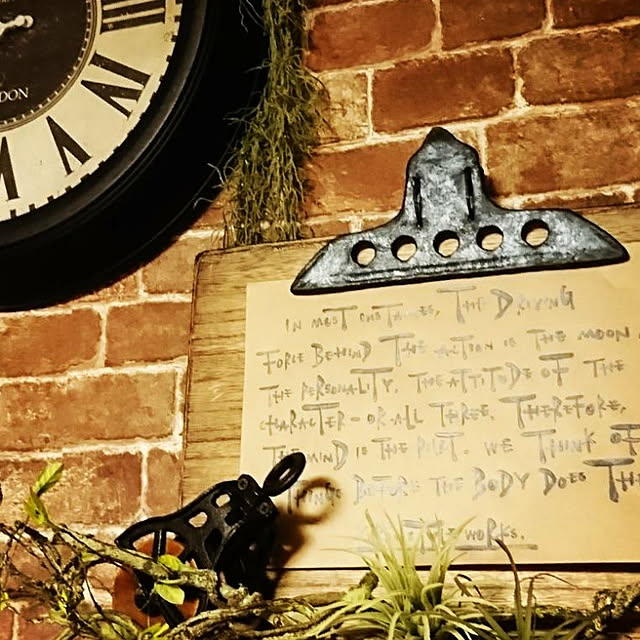 III
IIII
V
VI
DON
IN MOST INSTANCES, THE DRIVING
FORCE BEHIND THE ACTION IS THE MOOD
THE PERSONALITY, THE ATTITUDE OF THE
CHARACTER-OR ALL THREE. THEREFORE,
THE MIND IS THE PILOT. WE THINK OF
THINGS BEFORE THE BODY DOES THE
WORKS.